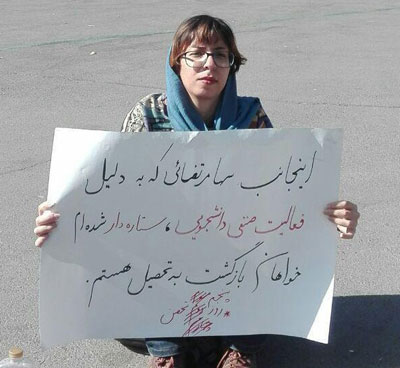 اینجانب سها مرتضائی که به دلیل
فعالیت صنفی دانشجویی، ستاره دار شده ام
خواهان بازگشت به تحصیل هستم.
پنجم
*روز تحصن